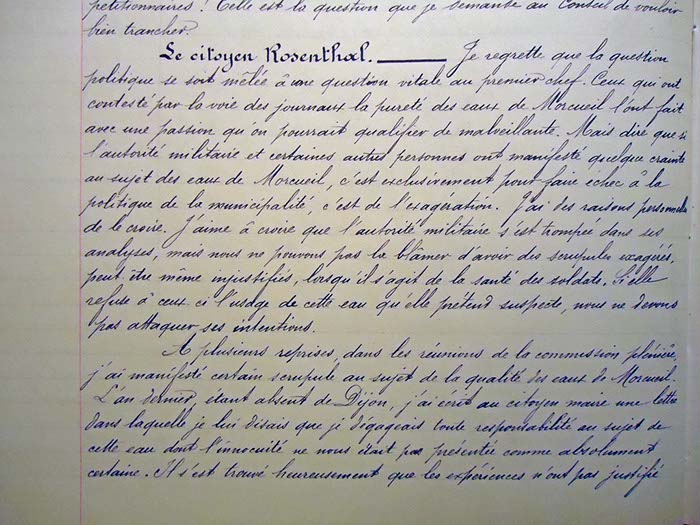 pétitionnaires ! Telle est la question que je demande au Conseil de vouloir
bien trancher.
Le citoyen Rosenthal. ——— Je regrette que la question
politique se soit mêlée à une question vitale au premier chef. Ceux qui ont
contesté par la voie des journaux la pureté des eaux de Morcueil l'ont fait
avec une passion qu'on pourrait qualifier de malveillante. Mais dire que si
l'autorité militaire et certaines autres personnes ont manifesté quelque crainte
au sujet des eaux de Morcueil, c'est exclusivement pour faire échec à la
politique de la municipalité, c'est de l'exagération. J'ai des raisons personnelles
de le croire. J'aime à croire que l'autorité militaire s'est trompée dans ses
analyses, mais nous ne pouvons pas la blâmer d'avoir des scrupules exagérés,
peut être même injustifiés, lorsqu'il s'agit de la santé des soldats. Si elle
refuse à ceux ci l'usage de cette eau qu'elle prétend suspecte, nous ne devons
pas attaquer ses intentions.
A plusieurs reprises, dans les réunions de la commission plénière,
j'ai manifesté certain scrupule au sujet de la qualité des eaux de Morcueil.
L'an dernier, étant absent de Dijon, j'ai écrit au citoyen maire une lettre
dans laquelle je lui disais que je dégageais toute responsabilité au sujet de
cette eau dont l'innocuité ne nous était pas présentée comme absolument
certaine. Il s'est trouvé heureusement que les expériences n'ont pas justifié